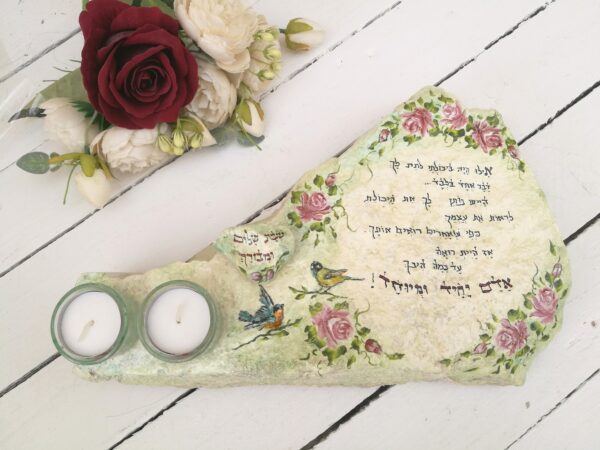 אילו היה ביכולתי לתת לך
דבר אחד בלבד...
הייתי נותן לך את היכולת
לראות את עצמך
כפי שאחרים רואים אותך
אז היית רואה
עד כמה הינך
אדם יחיד ומיוחד!
שבת שלום
ומבורך